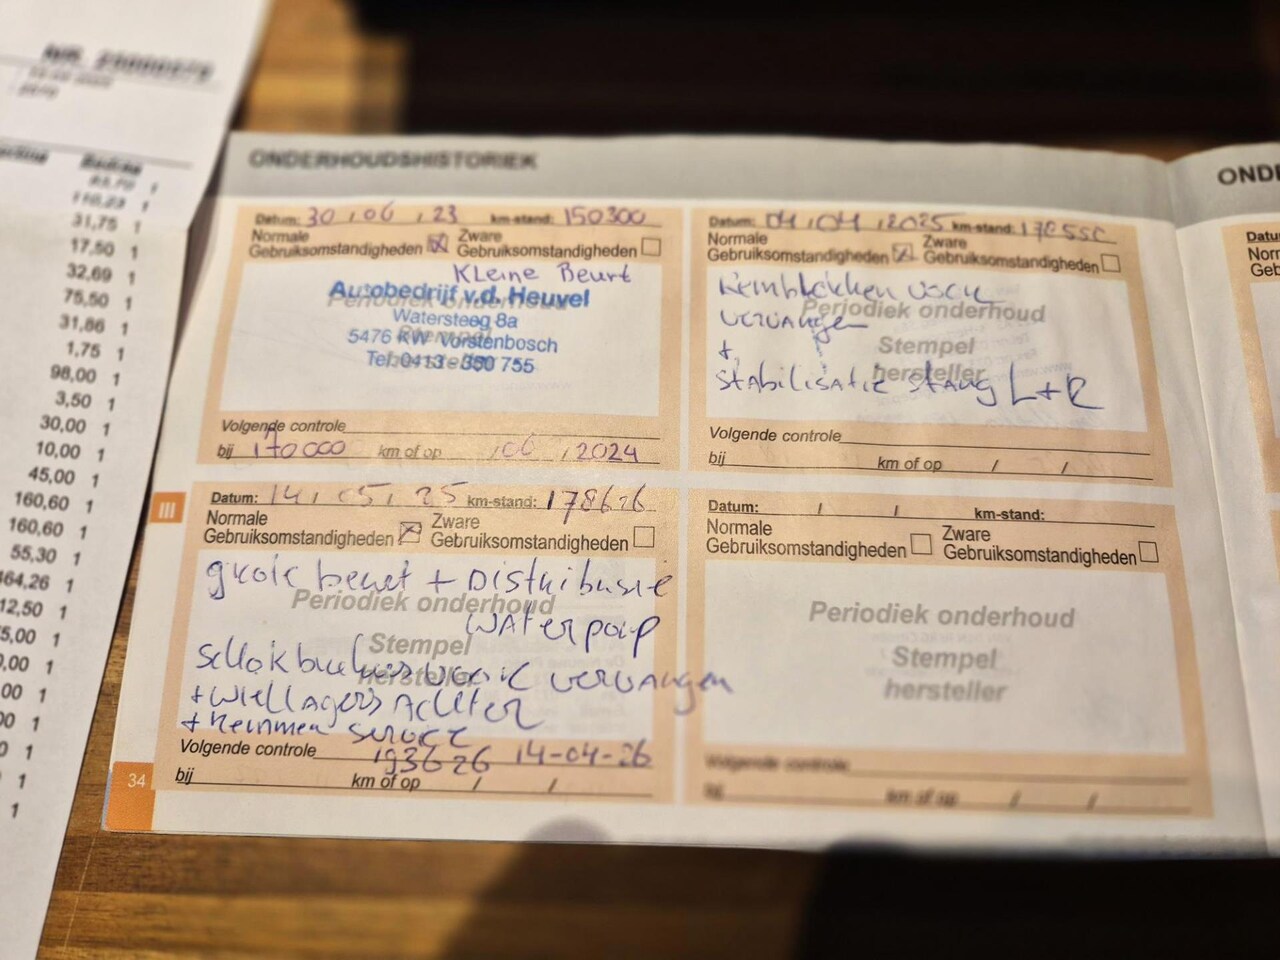 31,75 1
17,50 1
32,69 1
75,50 1
31,86 1
1,75 1
98,00 1
3,50 1
30,00 1
10,00 1
45,00 1
160,60 1
160,60 1
55,30 1
464,26 1
12,50 1
5,00 1
,00 1
00 1
00 1
0 1
1
1
ONDERHOUDSHISTORIEK
Datum: 30 / 06 / 23 km-stand: 150300
Normale Gebruiksomstandigheden ☒ Zware Gebruiksomstandigheden ☐
Kleine Beurt
Periodiek onderhoud
Stempel
hersteller
Autobedrijf v.d. Heuvel
Watersteeg 8a
5476 KW Vorstenbosch
Tel. 0413 - 350 755
Volgende controle
bij 170000 km of op / 06 / 2024
Datum: 04 / 04 / 2025 km-stand:
Normale Gebruiksomstandigheden ☒ Zware Gebruiksomstandigheden ☐
Remblokken voor
vervangen
+
stabilisatie stang L+R
Periodiek onderhoud
Stempel
hersteller
Volgende controle
bij km of op / /
III
Datum: 14 / 05 / 25 km-stand: 178626
Normale Gebruiksomstandigheden ☒ Zware Gebruiksomstandigheden ☐
grote beurt + Distributie
waterpomp
schokbrekers voor vervangen
+ wiellagers Achter
+ Remmen service
Periodiek onderhoud
Stempel
hersteller
Volgende controle 193626 14-04-26
bij km of op / /
Datum: / / km-stand:
Normale Gebruiksomstandigheden ☐ Zware Gebruiksomstandigheden ☐
Periodiek onderhoud
Stempel
hersteller
Volgende controle
bij km of op / /
34
OND